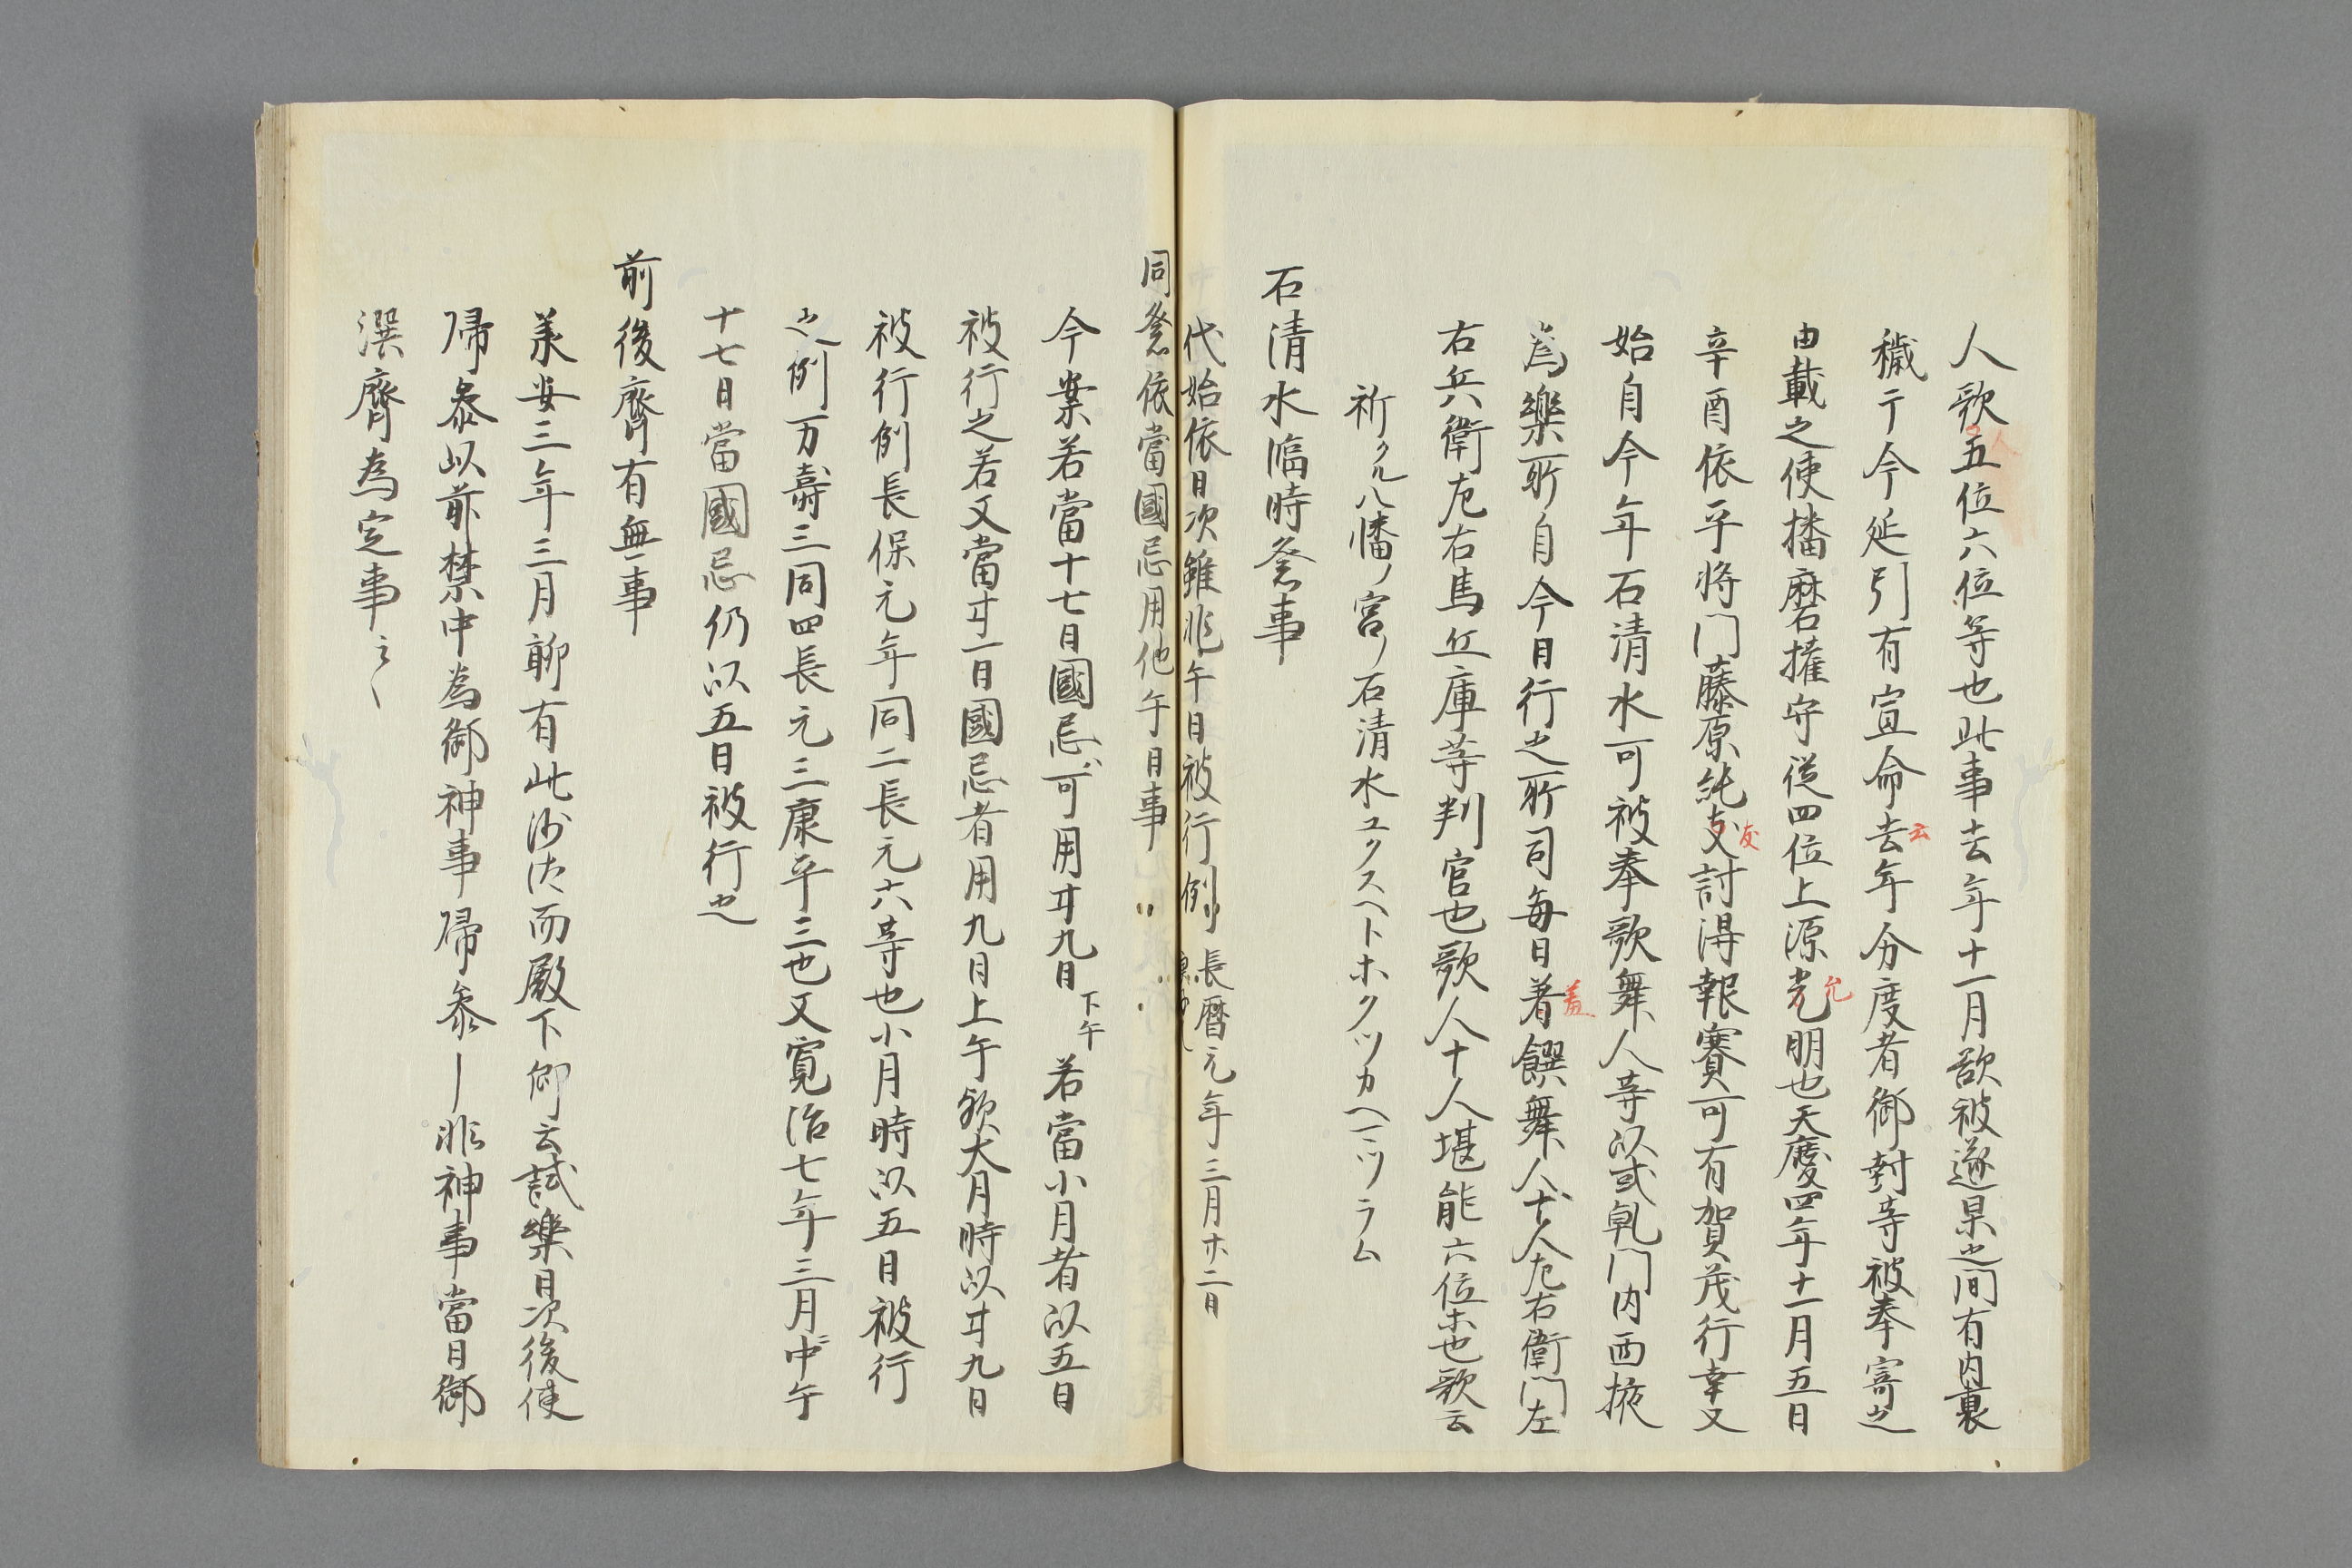 人歌五位六位等也此事去年十一月欲被遂果之間有内裏
人
穢于今延引有宣命去年分度者御封等被奉寄之
云
由載之使播磨権守従四位上源光明也天慶四年十一月五日
允
辛酉依平将門藤原純支討得報賽可有賀茂行幸又
友
始自今年石清水可被奉歌舞人等以或乹門内西掖
為樂所自今日行之所司毎日着饌舞人十人左右衛門左
羞
右兵衛左右馬兵庫等判官也歌人十人堪能六位ホ也歌云
祈クル八幡ノ宮ノ石清水ユクスヘトホクツカヘマツラム
石清水臨時祭事
代始依日次雖非午日被行例 長暦元年三月廿二日
同祭依當國忌用他午日事
今案若當十七日國忌可用廿九日下午若當小月者以五日
被行之若又當廿一日國忌者用九日上午欤大月時以廿九日
被行例長保元年同二長元六等也小月時以五日被行
之例万壽三同四長元三康平三也又寛治七年三月中午
十七日當國忌仍以五日被行之
前後齊有無事
義安三年三月聊有此沙汰而殿下仰云試樂日次後使
帰参以前禁中為御神事帰参〡非神事當日御
潔齊為定事云々